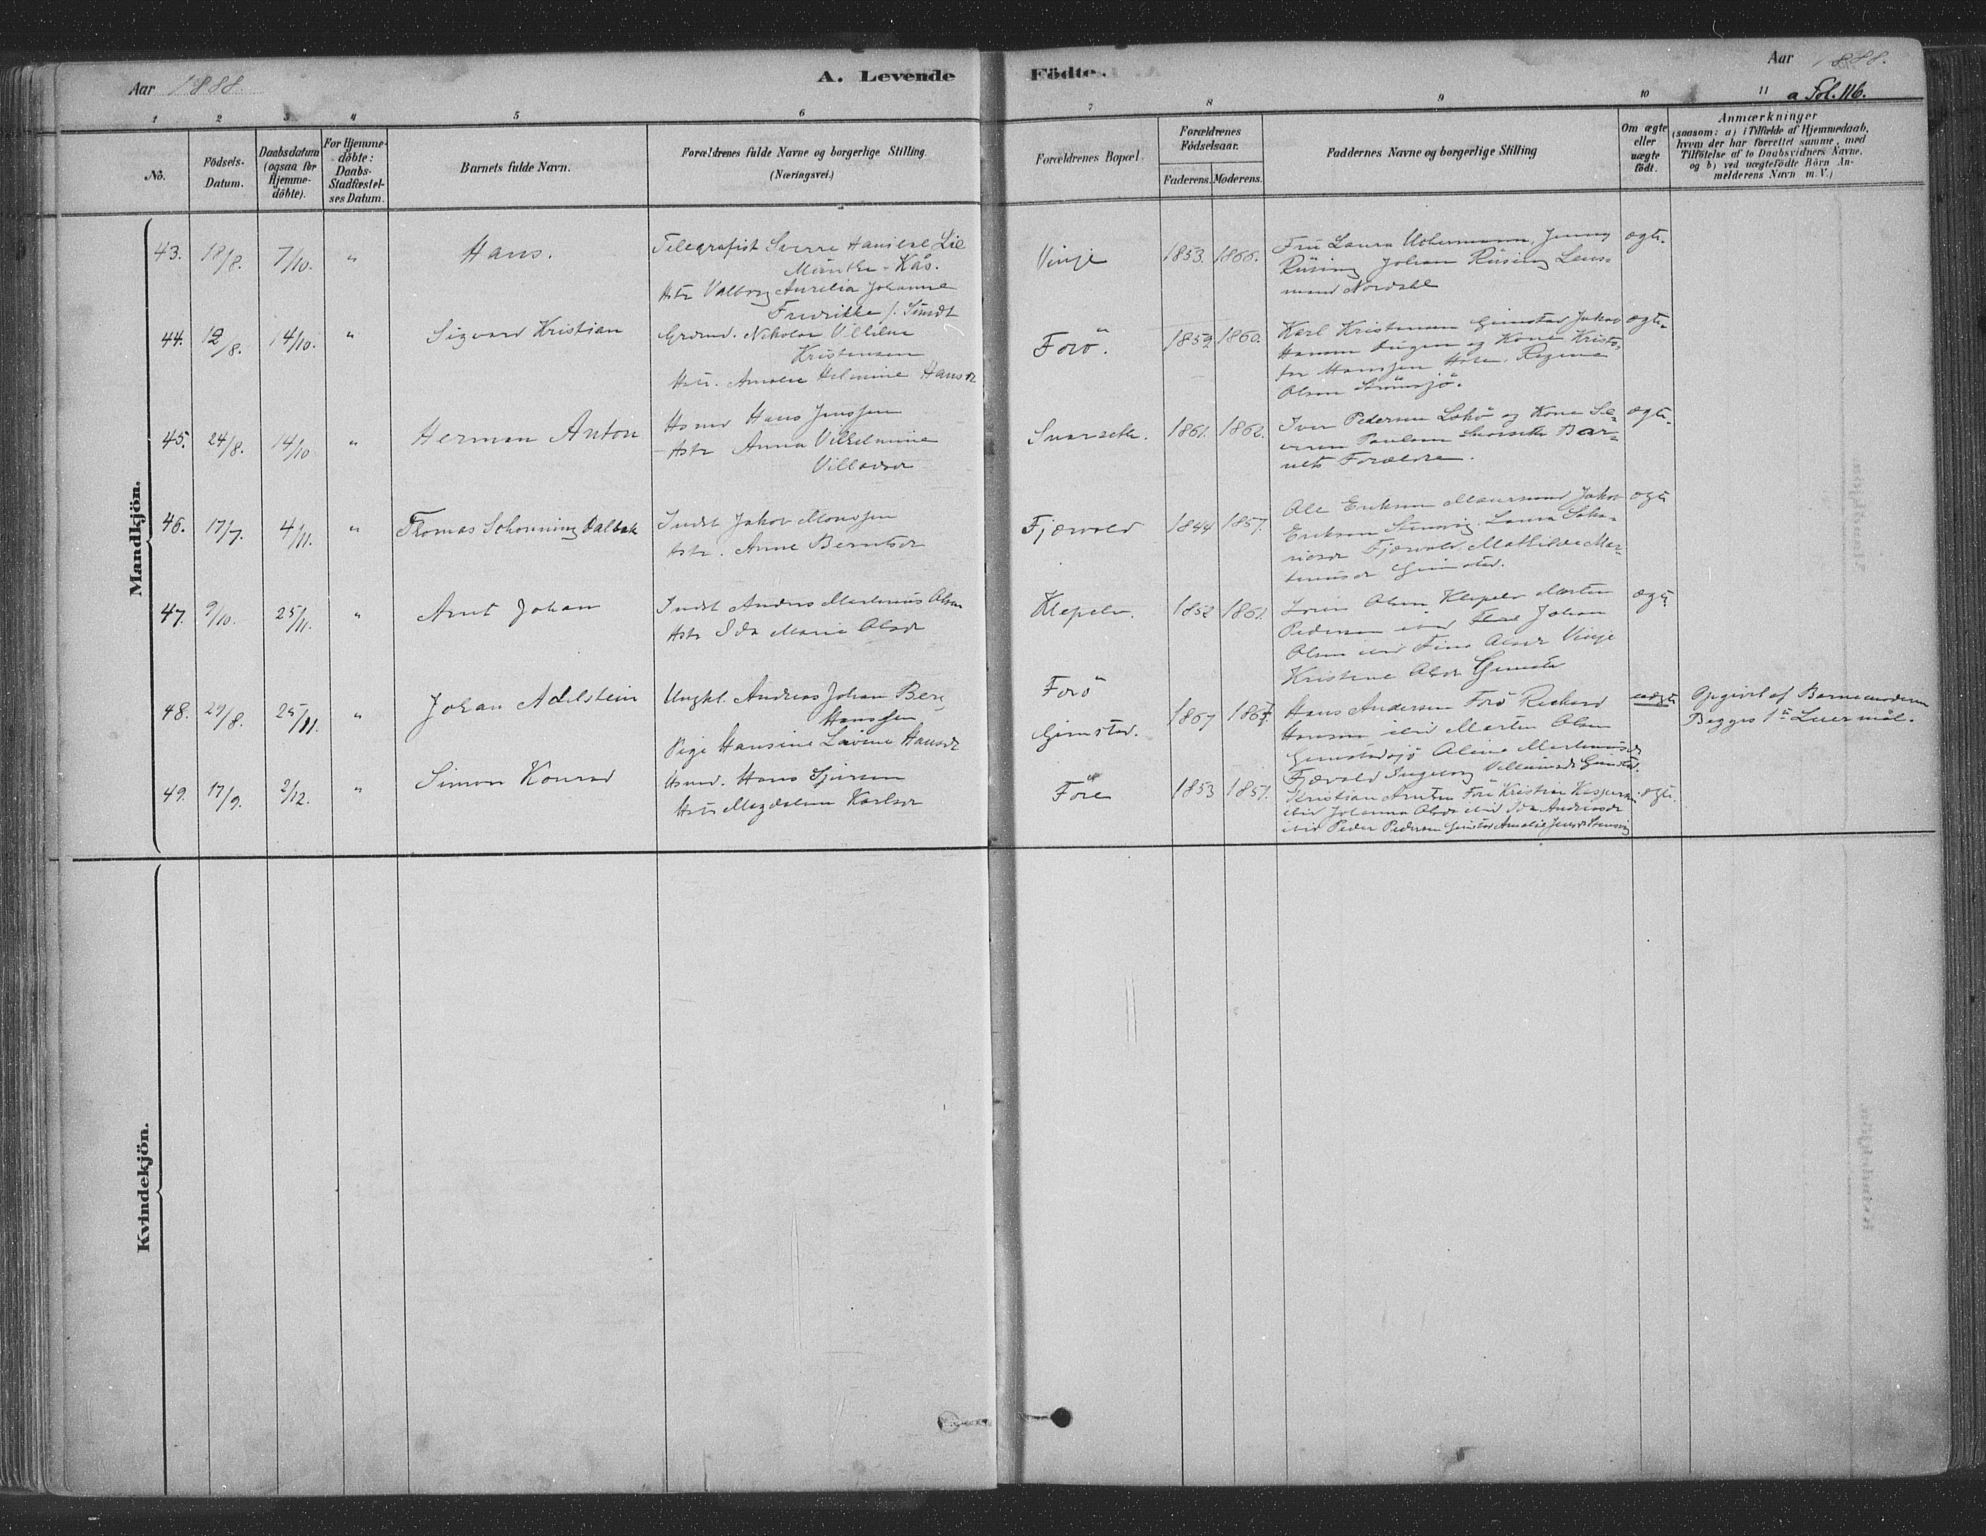 Aar 1888.
A. Levende
Födte.
Aar 1888.
a Fol. 116.
1 2 3 4 5 6 7 8 9 10 11
No.
Födsels-
Datum.
Daabsdatum
(ogsaa for
Hjemme-
döbte).
For Hjemme-
döbte:
Daabs-
Stadfæstel-
ses Datum.
Barnets fulde Navn.
Forældrenes fulde Navne og borgerlige Stilling.
(Næringsvei.)
Forældrenes Bopæl.
Forældrenes
Födselsaar.
Faderens. Moderens.
Faddernes Navne og borgerlige Stilling
Om ægte
eller
uægte
født.
Anmærkninger
(saasom: a) i Tilfælde af Hjemmedaab,
hvem der har forrettet samme, med
Tilföielse af to Daabsvidners Navne.
og b) ved uægtefödte Börn An-
melderens Navn m. V.)
Mandkjön.
43. 18/8. 7/10. " Hans.
Telegrafist Sverre Lie
Münthe-Kås.
Hstr Valborg Aurelia Johanne
Fredrikke f. Smidt
Vinje 1853. 1866.
Fru Laura Uchermann, Jenny
Rüsing Johan Rüsing Lens-
mand Nordahl
ægte.
44. 12/8. 14/10. " Sigvard Kristian
Nikolai Vilhelm
Kristensen
Hstr. Amalie Helmine Hansdr
Forö. 1859 1860.
Karl Kristensen Gimstad Jakob
Hansen og Kone Kristo-
fer Hanssen Regine
Olsen
ægte.
45. 24/8. 14/10 " Herman Anton
Hsmd Hans Jenssen
Hstr Anna Vilhelmine
Villadsdr
Svarseth. 1861. 1862.
Iver Pedersen og Kone
Paulsen Bar-
nets Forældre.
ægte.
46. 17/7. 4/11. " Thomas Schonning Dalbak
Indst Jakob Monssen
Hstr. Anne Berntsdr
Fjærvold 1844 1857
Ole Eriksen Maursund Jakob
Eriksen Laura
Fjærvold, Mathilde Mar-
Gimstad.
ægte
47. 9/10. 25/11. " Arnt Johan
Indst Anders Martinus Olsen
Hstr Ida Marie Olsdr
Klepelv. 1852 1861.
Olsen Klepelv Morten
Pedersen ibid Johan
Olsen ibid Fina Olsdr Vinje
Kristine Olsdr Gimstad
ægte
48. 29/8. 25/11. " Johan Adelstein
Ungkl. Andreas Johan Berg
Hanssen
Pige Hansine Lovine Hansdr
Forö
Gimstad. 1867 1867.
Hans Andersen Forö Richard
Hansen ibid Morten Olsen
Gimstadsjö Oline Martinusdr
Fjærvold Ingeborg Villumsdr Gimstad.
uægte
Opgivet af Barnemoderen
Begges 1ste Leiermål.
49. 17/9. 2/12. " Simon Konrad
Hsmd. Hans Sjursen
Hstr Magdalena Karlsdr
Före 1853 1857.
Kristian Arntsen Före Kristian Kaspersen
ibid Johanna Olsdr ibid Ida Andreasdr
ibid Peder Pedersen Gimstad Amalie Jensdr
ægte.
Kvindekjön.